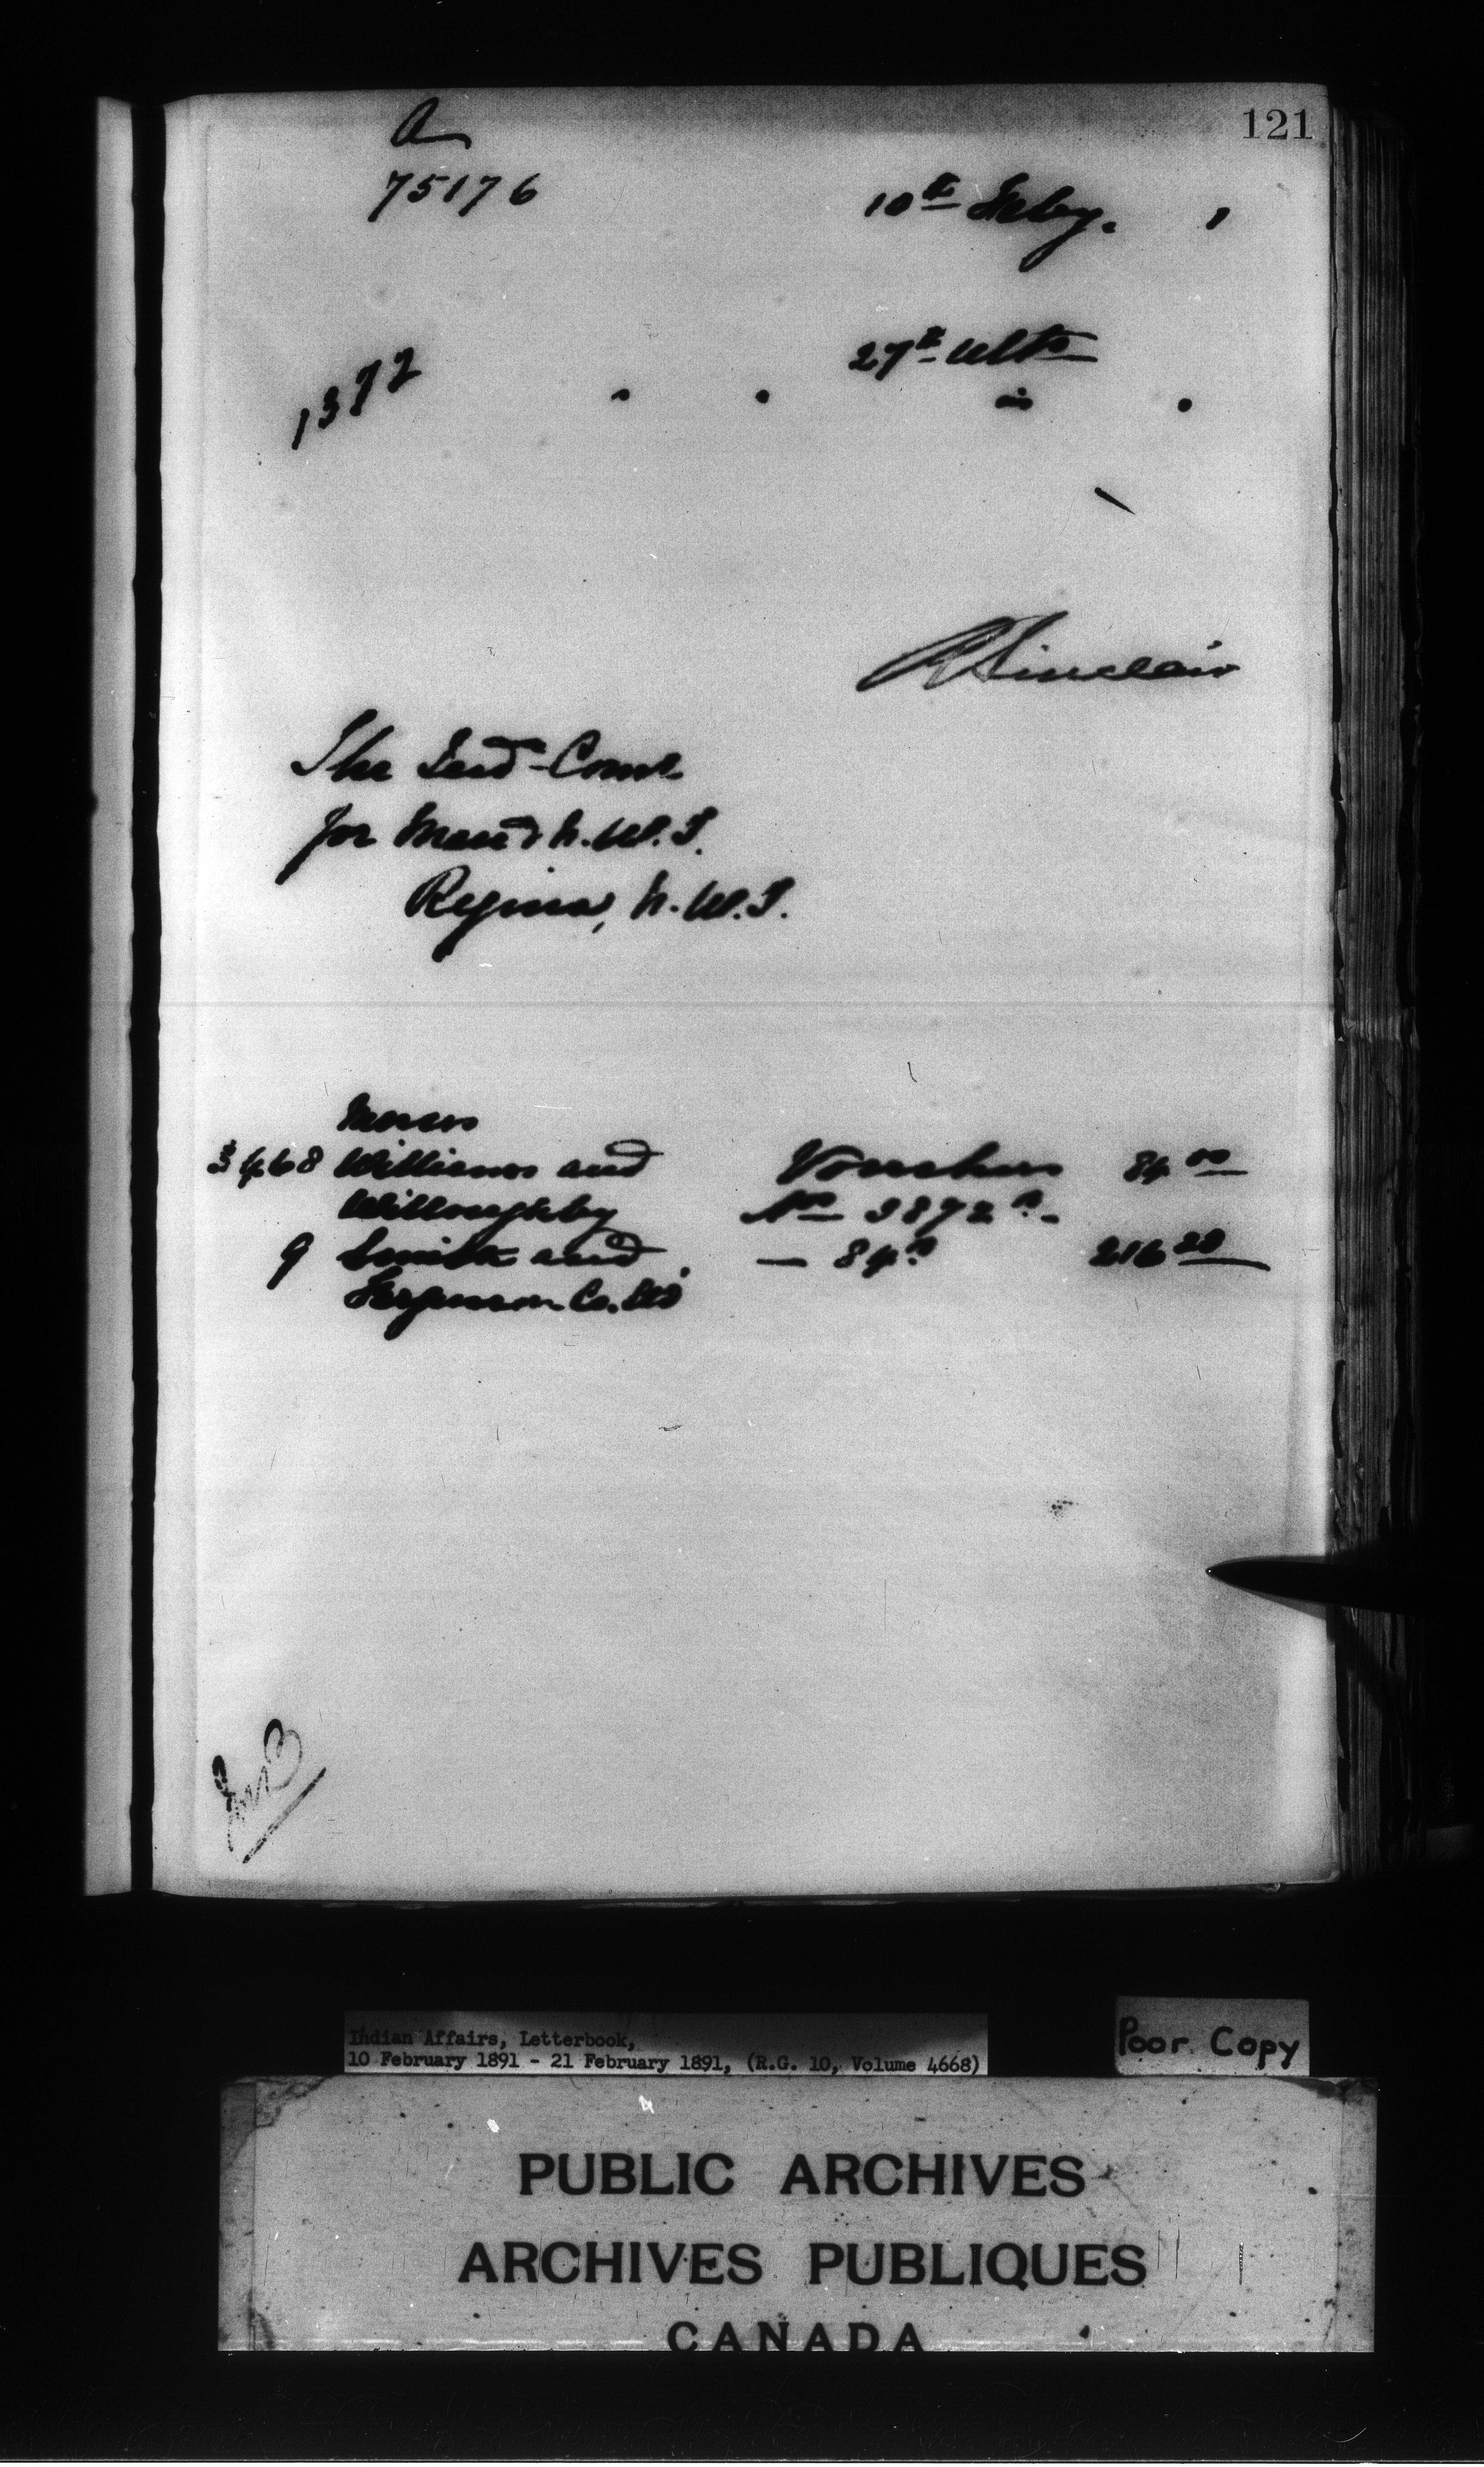 121
A
75176
10th Feby. 1
27th Ulto
1372
RSinclair
The Ind. Comr
for Man & N.W.T.
Regina, N.W.T.
Messrs
3468 Williams and Vouchers 84 00
Willoughby No 3872
9 Smith and — 84 216 20
Ferguson Co. Ltd
Indian Affairs, Letterbook,
10 February 1891 - 21 February 1891, (R.G. 10, Volume 4668)
Poor Copy
PUBLIC ARCHIVES
ARCHIVES PUBLIQUES
CANADA